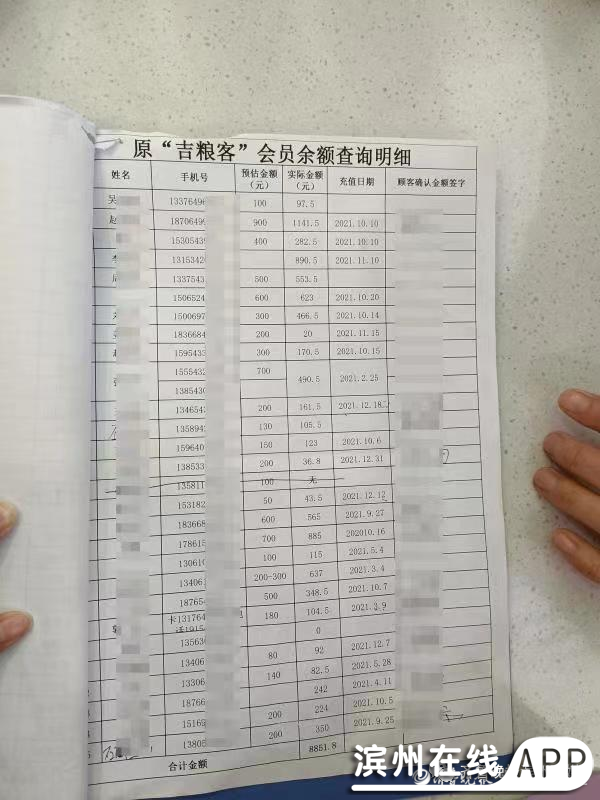 原“吉粮客”会员余额查询明细
姓名 手机号 预估金额(元) 实际金额(元) 充值日期 顾客确认金额签字
吴 13376496 100 97.5
赵 18706499 900 1141.5 2021.10.10
15305439 400 282.5 2021.10.10
李 13153420 890.5 2021.11.10
周 13375431 500 553.5
1506524 600 623 2021.10.20
1500697 300 466.5 2021.10.14
1836684 200 20 2021.11.15
1595433 300 170.5 2021.10.15
1555432 700 490.5 2021.2.25
1385430
1346542 200 161.5 2021.12.18
1358942 130 105.5
159640 150 123 2021.10.6
138533 200 36.8 2021.12.31
135811 100 无
153182 50 43.5 2021.12.12
183668 600 565 2021.9.27
178615 700 885 202010.16
130610 100 115 2021.5.4
134061 200-300 637 2021.3.4
187654 500 348.5 2021.10.7
卡131764 180 104.5 2021.3.9
话1915
135630 0
134061 80 92 2021.12.7
133061 140 82.5 2021.5.28
18766 242 2021.4.11
15169 200 224 2021.10.5
13805 200 350 2021.9.25
合计金额 8851.8
滨州在线 APP